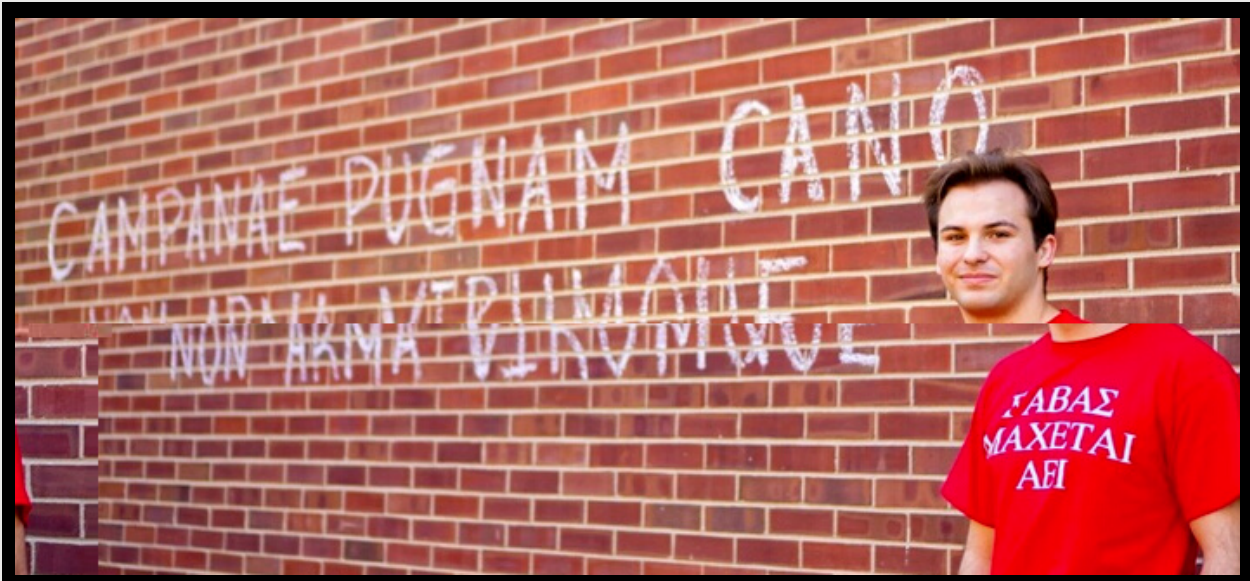 CAMPANAE PUGNAM CANO
NON ARMA
ΓΑΒΑΣ
ΜΑΧΕΤΑΙ
ΑΕΙ